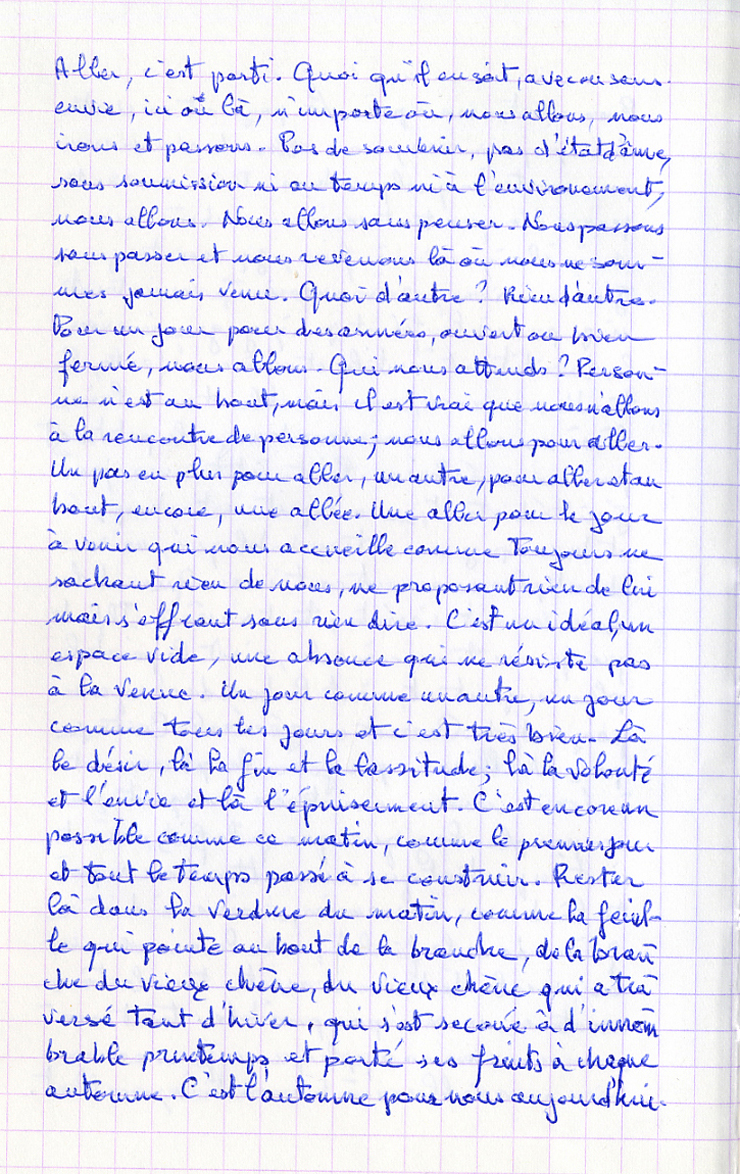 Aller, c'est parti. Quoi qu'il en soit, avec ou sans
envie, ici où là, n'importe où, nous allons, nous
irons et passons. Pas de souvenir, pas d'état d'âme,
sans soumission ni au temps ni à l'environnement,
nous allons. Nous allons sans penser. Nous passons
sans passer et nous revenons là où nous ne som-
mes jamais venu. Quoi d'autre ? Rien d'autre.
Pour un jour pour des années, ouvert ou bien
fermé, nous allons. Qui nous attends ? Person-
ne n'est au bout, mais il est vrai que nous n'allons
à la rencontre de personne ; nous allons pour aller.
Un pas en plus pour aller, un autre, pour aller et au
bout, encore, une allée. Une aller pour le jour
à venir qui nous accueille comme toujours ne
sachant rien de nous, ne proposant rien de lui
mais s'offrant sans rien dire. C'est un idéal, un
espace vide, une absence qui ne résiste pas
à la venue. Un jour comme un autre, un jour
comme tous les jours et c'est très bien. Là
le désir, là la fin et la lassitude ; là la volonté
et l'envie et là l'épuisement. C'est encore un
possible comme ce matin, comme le premier jour
et tout le temps passé à se construir. Rester
là dans la verdure du matin, comme la feuil-
le qui pointe au bout de la branche, de la bran
che du vieux chêne, du vieux chêne qui a tra
versé tant d'hiver, qui s'est secoué à d'innom
brable printemps et porté ses fruits à chaque
automne. C'est l'automne pour nous aujourd'hui.